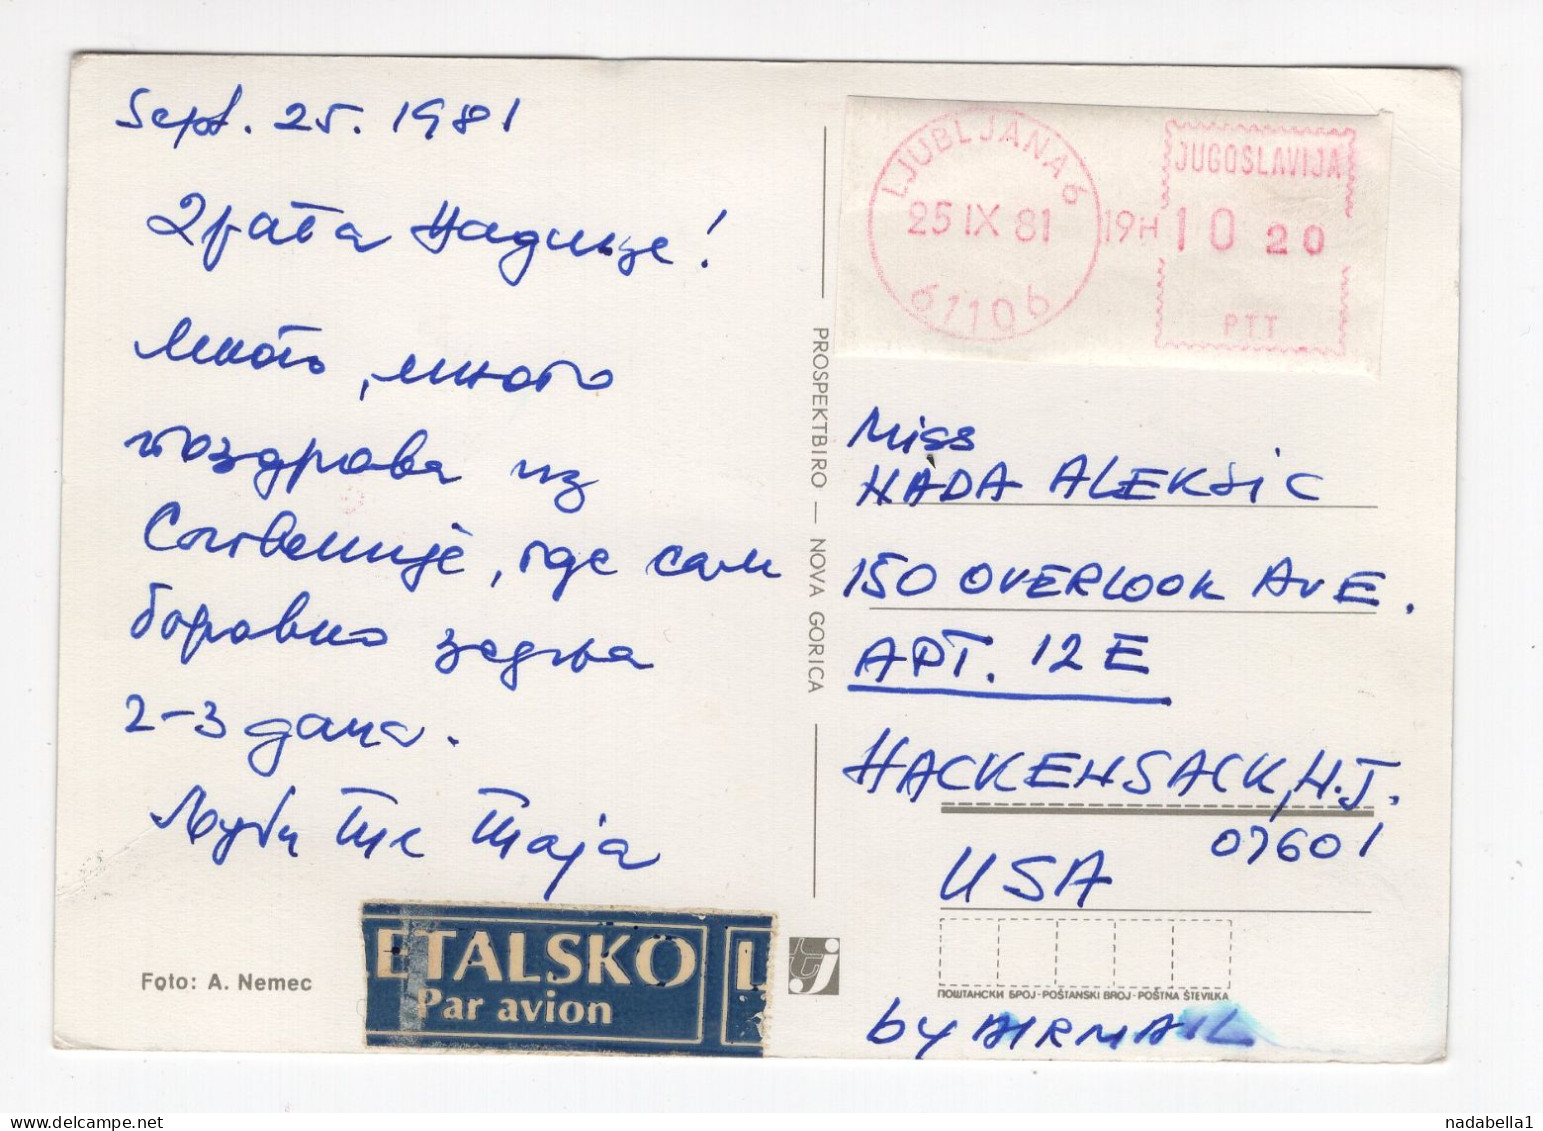 Sept. 25. 1981
Драга Надице!
Много, много
поздрава из
Словеније, где сам
боравио задња
2-3 дана.
Љуби те Таја
Foto: A. Nemec
LETALSKO
Par avion
L
PROSPEKTBIRO — NOVA GORICA
LJUBLJANA 6
25 IX 81
61106
19H
JUGOSLAVIJA
10 20
PTT
Miss
NADA ALEKSIC
150 OVERLOOK AVE.
APT. 12E
HACKENSACK, N.J.
07601
USA
ПОШТАНСКИ БРОЈ-POŠTANSKI BROJ-POŠTNA ŠTEVILKA
by AIRMAIL
nadabella1